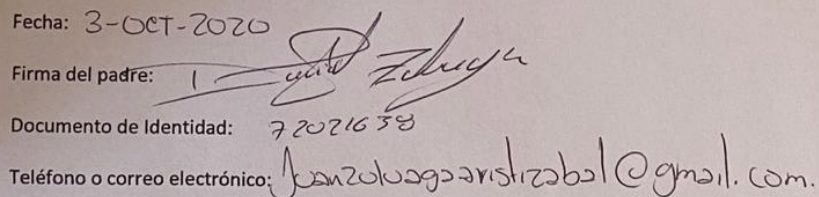 Fecha: 3-OCT-2020
Firma del padre: Zuluaga
Documento de Identidad: 72021638
Teléfono o correo electrónico: Juanzuluagaaristizabal@gmail.com.